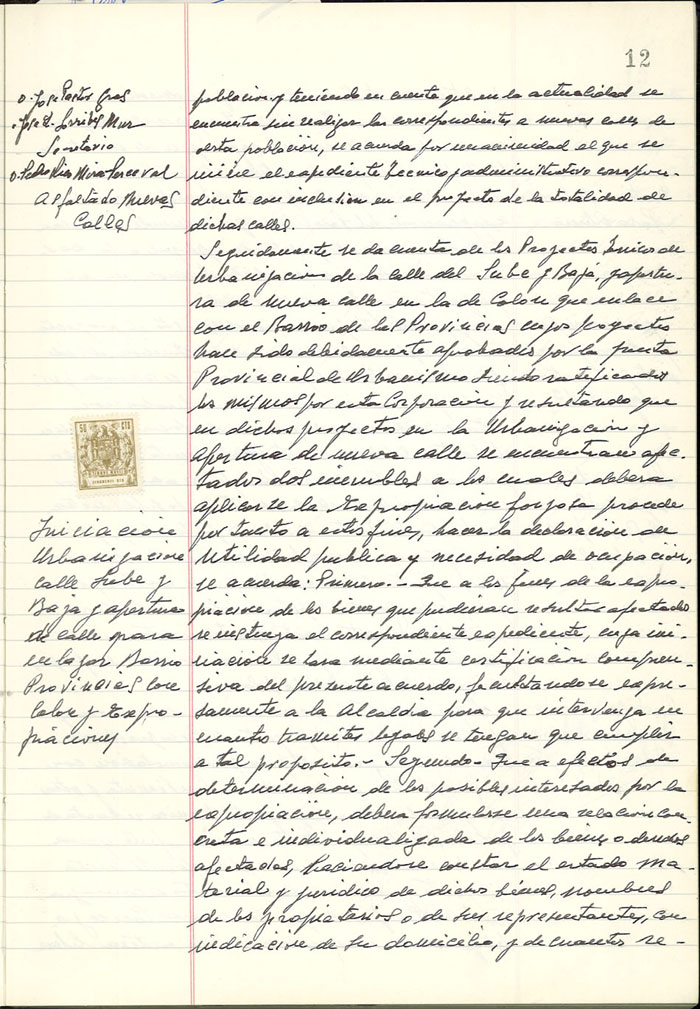 12
D. Jose Pastor Gras
D. Jose L. Sorribes Mur
Secretario
D. Pedro Mira Perceval
Asfaltado Nuevas
Calles
poblacion y teniendo en cuenta que en la actualidad se
encuentra sin realizar las correspondientes a nuevas calles de
esta población, se acuerda por unanimidad el que se
inicie el expediente técnico y administrativo correspon-
diente con inclusion en el proyecto de la totalidad de
dichas calles.
Seguidamente se da cuenta de los Proyectos Técnicos de
Urbanizacion de la calle del Sube y Baja, y apertu-
ra de nueva calle en la de Colon que enlace
con el Barrio de las Provincias cuyos proyectos
hace sido debidamente aprobados por la Junta
Provincial de Urbanismo siendo ratificados
los mismos por esta Corporacion y resultando que
en dichos proyectos en la Urbanizacion y
apertura de nueva calle se encuentran afec-
tados dos inmuebles a los cuales debera
aplicarse la Expropiación forzosa procede
por tanto a estos fines, hacer la declaración de
Utilidad publica y necesidad de ocupación,
se acuerda: Primero.- Que a los fines de la expro-
piacion de los bienes que pudieran resultar afectados
se instruya el correspondiente expediente, cuya ini-
ciacion se hara mediante certificación compren-
siva del presente acuerdo, facultandose expre-
samente a la Alcaldia para que intervenga en
cuantos tramites legales se tengan que cumplir
a tal proposito.- Segundo- Que a efectos de
determinacion de los posibles interesados por la
expropiación, debera formularse una relacion con-
creta e individualizada de los bienes o derechos
afectados, haciendose constar el estado ma-
terial y juridico de dichos bienes, nombres
de los propietarios o de sus representantes, con
indicacion de su domicilio, y de cuantos re-
50 CTS
Iniciacion
Urbanizacion
calle Sube y
Baja y apertura
de calle para
enlazar Barrio
Provincias con
Colon y Expro-
piaciones